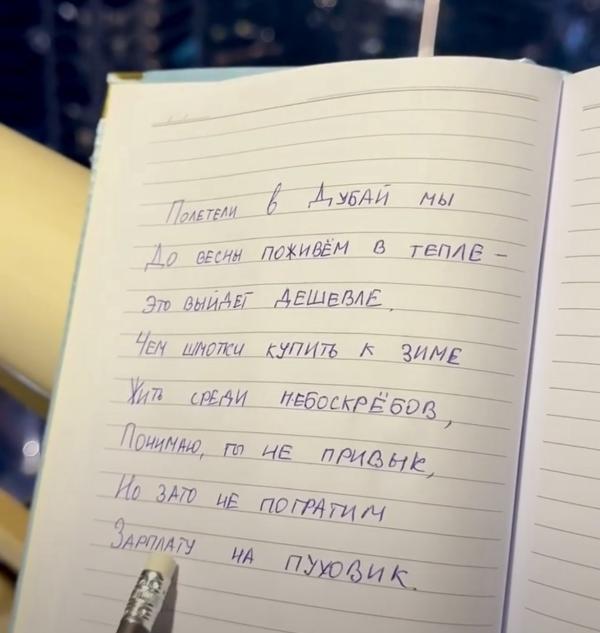 Полетели в Дубай мы
До весны поживём в тепле –
Это выйдет дешевле,
Чем шмотки купить к зиме
Жить среди небоскрёбов,
Понимаю, ты не привык,
Но зато не потратим
Зарплату на пуховик.